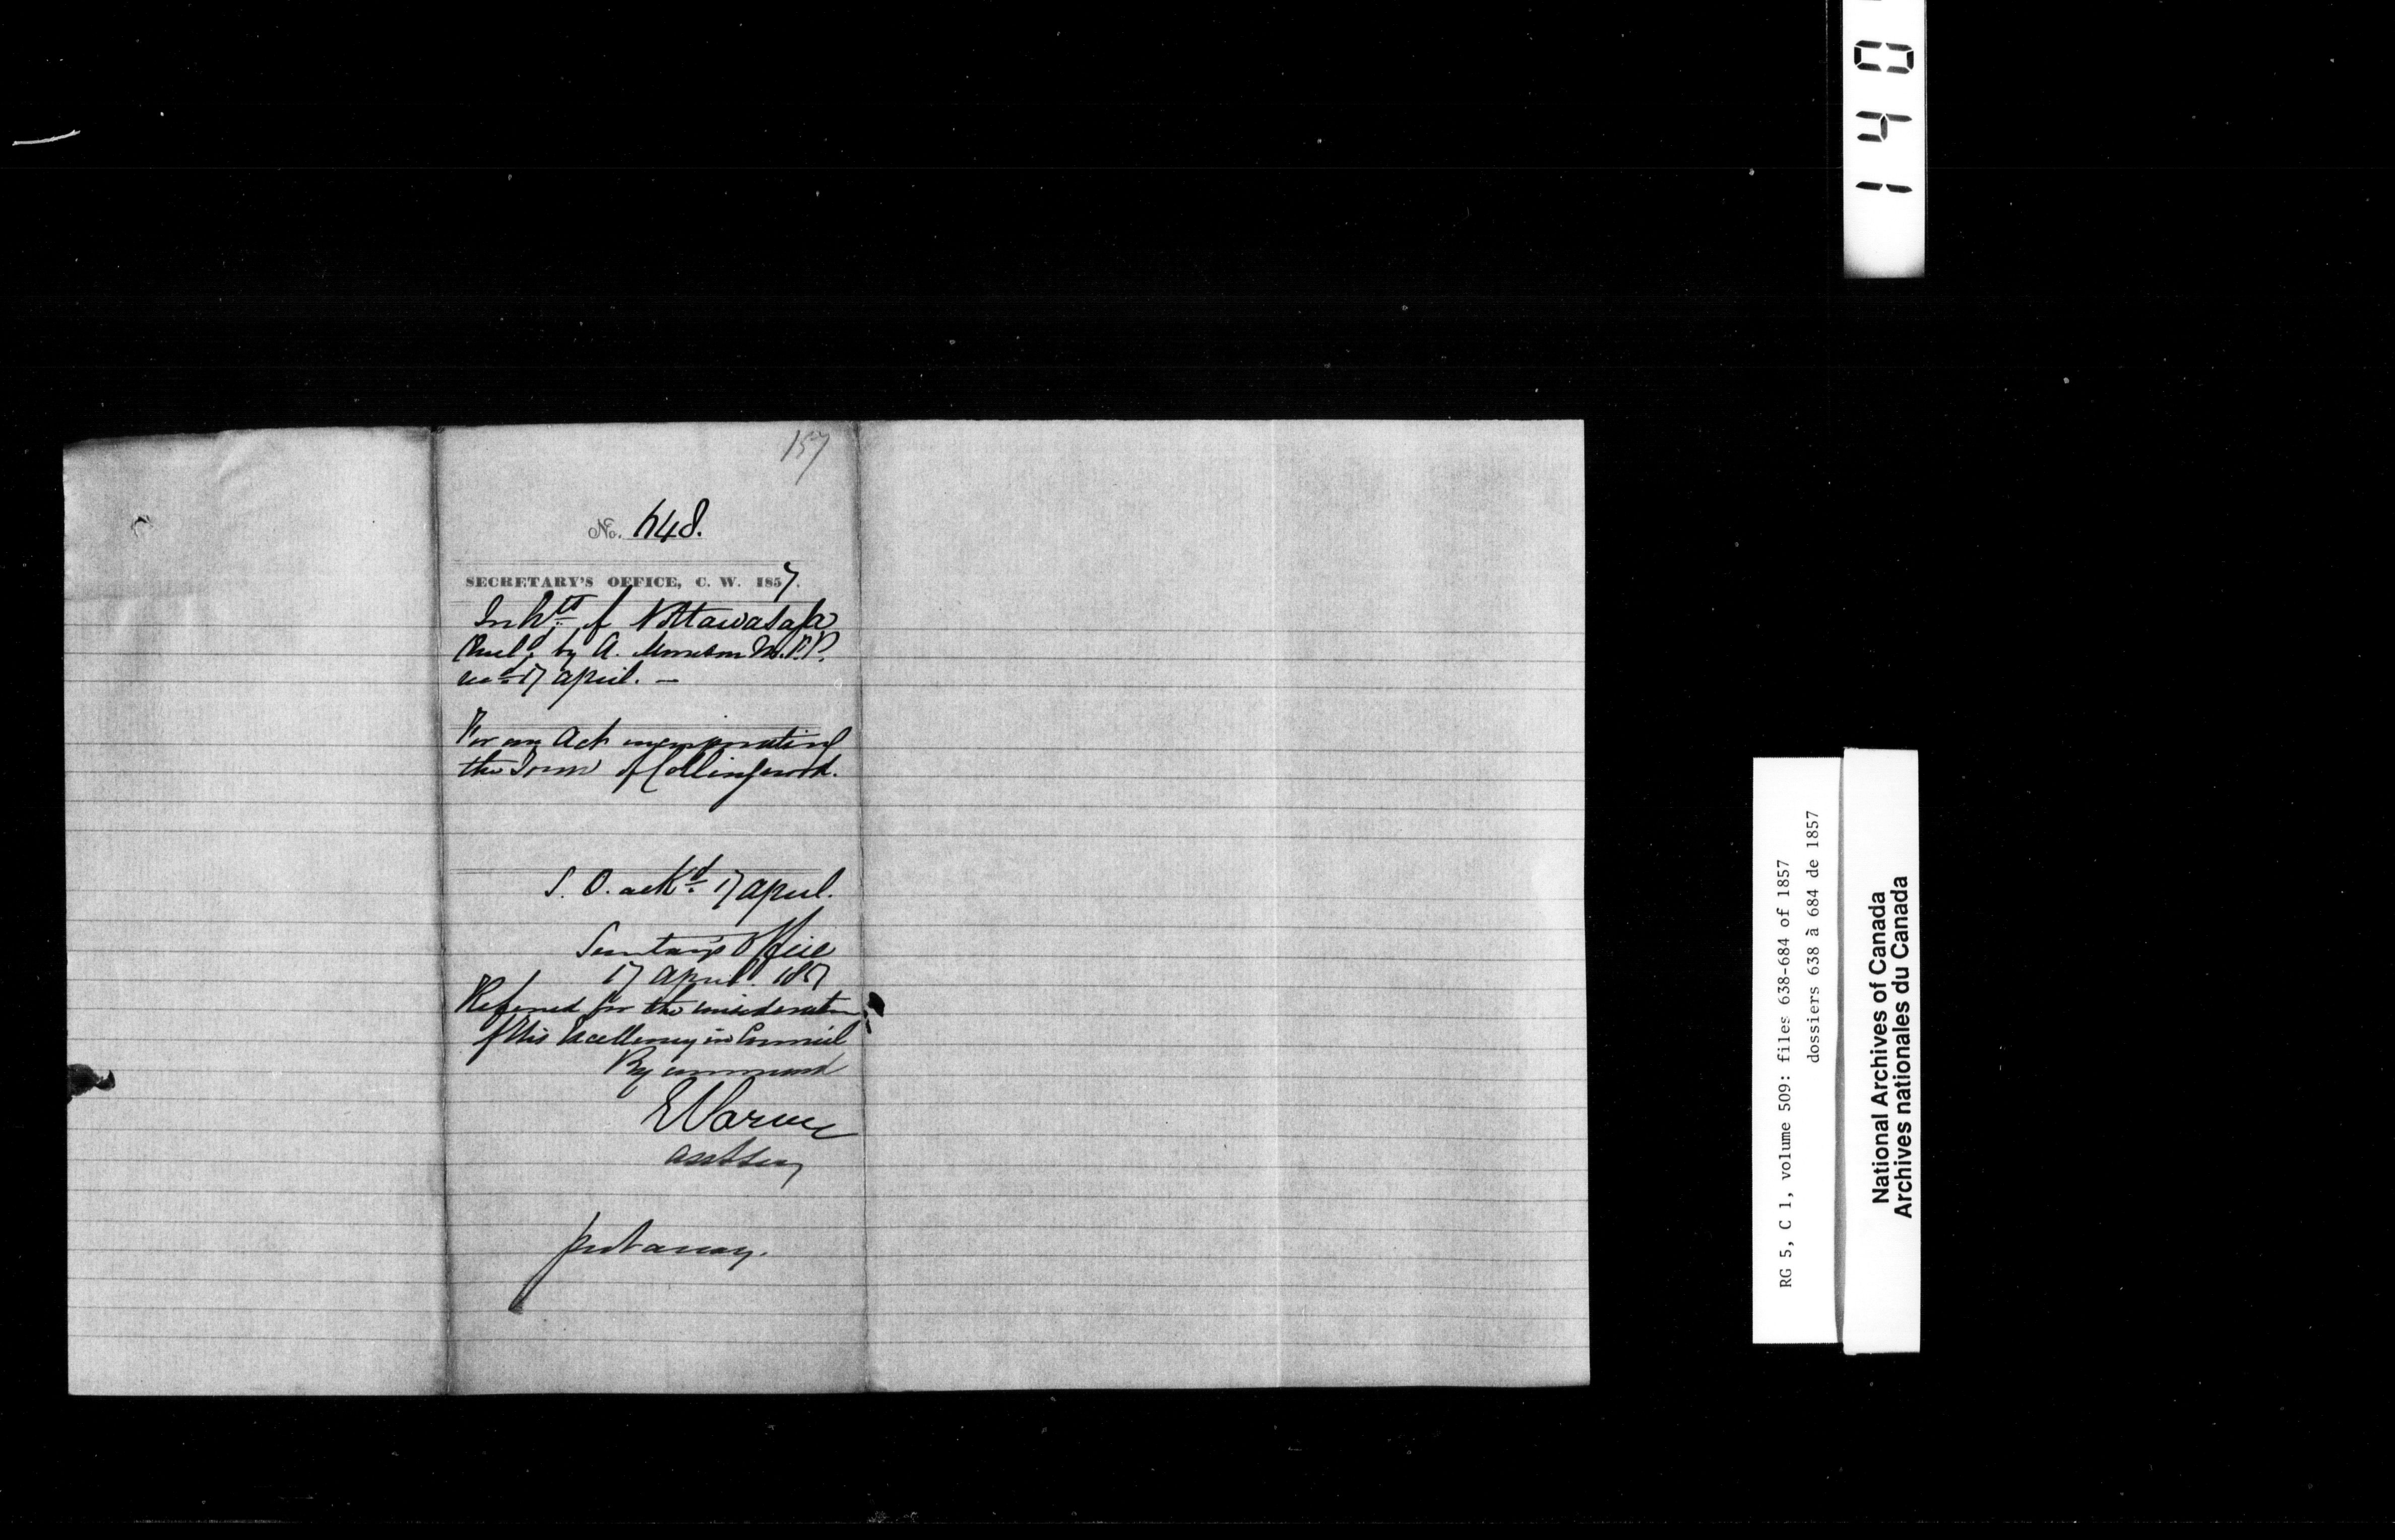 157
No. 648.
SECRETARY'S OFFICE, C. W. 1857.
Inhts of Nottawasaga
Encld by A. Morrison M.P.P.
recd 17 April. —
For an Act incorporating
the Town of Collingwood.
S. O. ackd 17 April.
Secretary's Office
17 April. 1857
Referred for the consideration
of His Excellency in Council
By command
E Parent
Asst Secy
put away.
140
RG 5, C 1, volume 509: files 638-684 of 1857
dossiers 638 à 684 de 1857
National Archives of Canada
Archives nationales du Canada